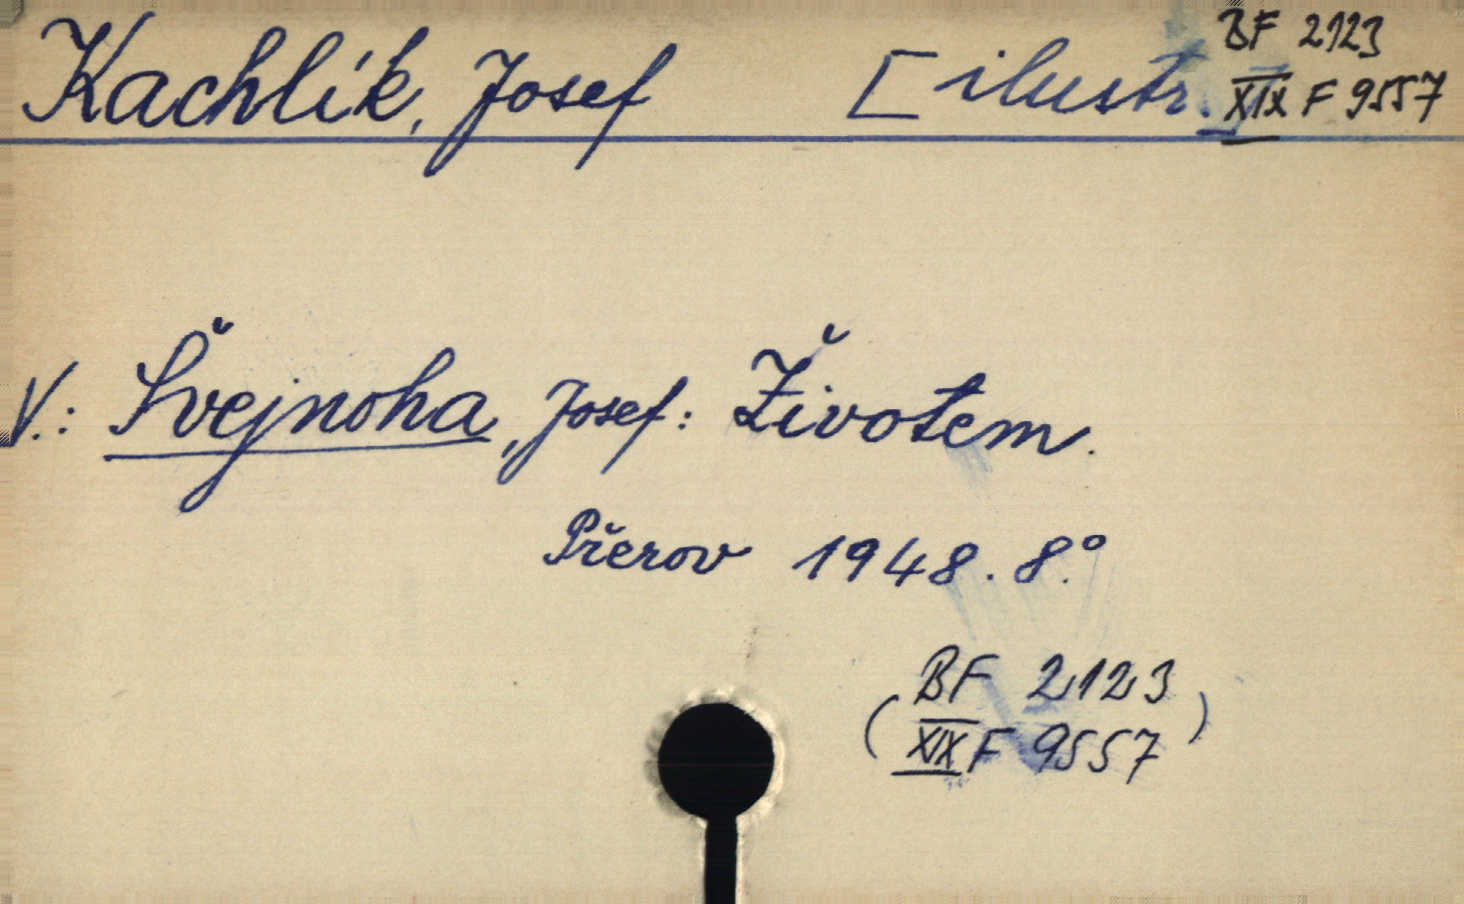 Kachlík, Josef [ilustr.] BF 2123
XIX F 9557
V.: Švejnoha, Josef: Životem.
Přerov 1948. 8°.
(BF 2123
XIX F 9557)